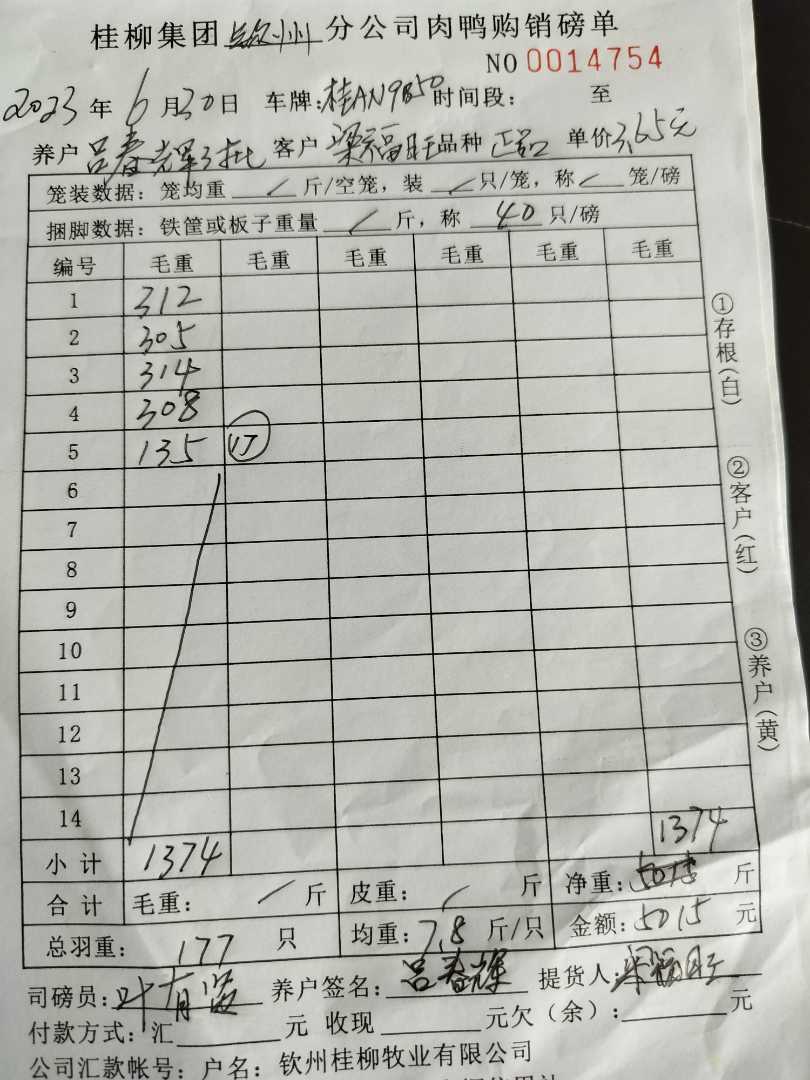 桂柳集团钦州分公司肉鸭购销磅单
NO 0014754
2023年6月30日 车牌:桂AN9850时间段: 至
养户吕春辉3批 客户梁福旺品种正品 单价3.65元
笼装数据:笼均重/斤/空笼,装/只/笼,称/笼/磅
捆脚数据:铁筐或板子重量/斤,称40只/磅
编号 毛重 毛重 毛重 毛重 毛重 毛重
1 312
2 305
3 314
4 308
5 135 17
6
7
8
9
10
11
12
13
14
小计 1374 1374
合计 毛重:/斤 皮重:/斤 净重:5015斤
总羽重:177只 均重:7.8斤/只 金额:5015元
司磅员:叶有 养户签名:吕春辉 提货人:梁福旺
付款方式:汇 元 收现 元欠(余): 元
公司汇款帐号:户名:钦州桂柳牧业有限公司
①存根(白)
②客户(红)
③养户(黄)